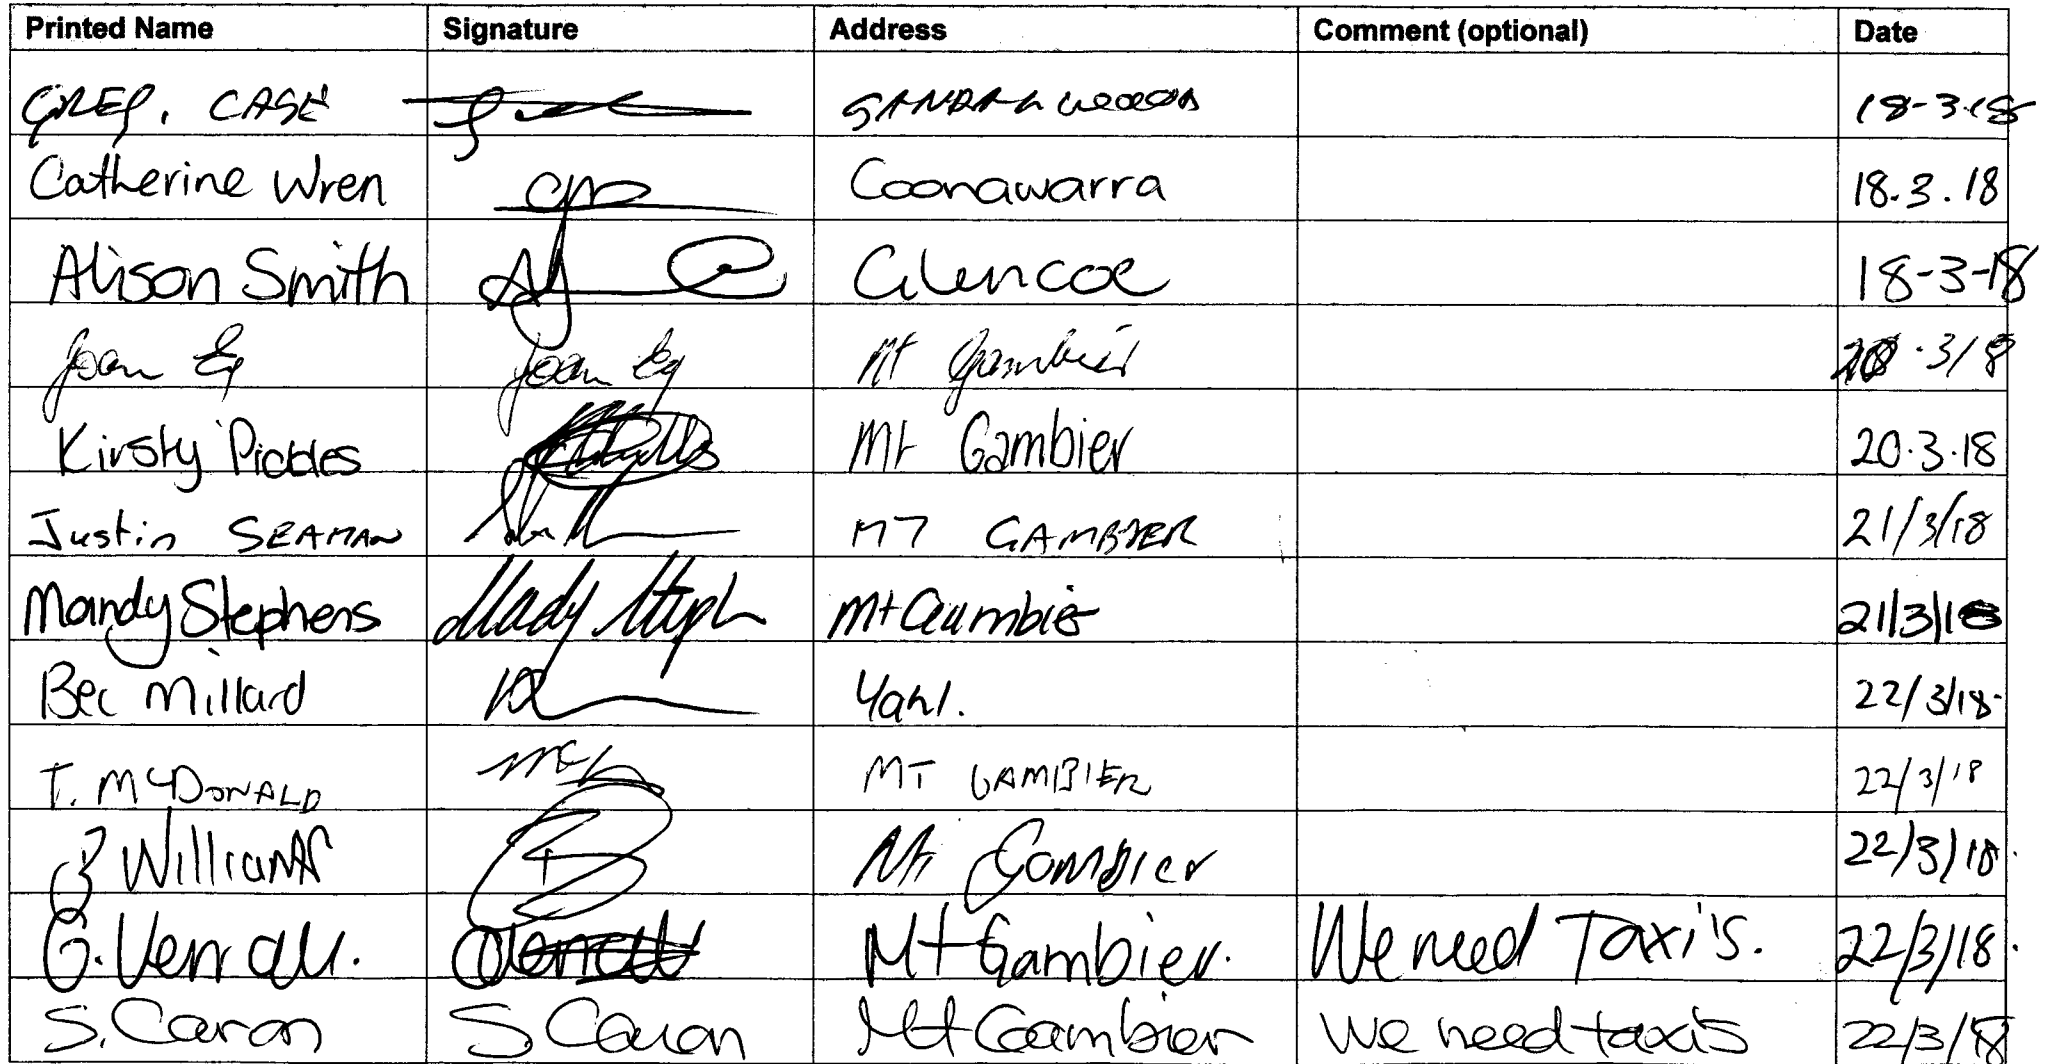 Printed Name Signature Address Comment (optional) Date
GREG. CASE 18-3-18
Catherine Wren Coonawarra 18.3.18
Alison Smith Glencoe 18-3-18
Joan Ey Joan Ey Mt Gambier 20.3/8
Kirsty Pickles Mt Gambier 20.3.18
Justin SEAMAN MT GAMBIER 21/3/18
Mandy Stephens Mt Gambier 21/3/18
Bec Millard Yahl. 22/3/18
T. McDONALD MT GAMBIER 22/3/18
Williams Mt Gambier 22/3/18.
G. Verrall. Mt Gambier. We need Taxi's. 22/3/18.
S. Caron S Caron Mt Gambier We need taxis 22/3/18